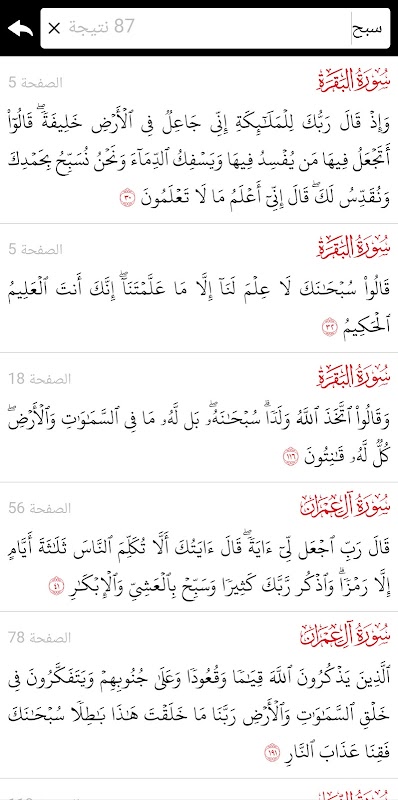 سبح 87 نتيجة ×
سُورَةُ البَقَرَةِ الصفحة 5
وَإِذْ قَالَ رَبُّكَ لِلْمَلَـٰٓئِكَةِ إِنِّى جَاعِلٌ فِى ٱلْأَرْضِ خَلِيفَةً ۖ قَالُوٓا۟
أَتَجْعَلُ فِيهَا مَن يُفْسِدُ فِيهَا وَيَسْفِكُ ٱلدِّمَآءَ وَنَحْنُ نُسَبِّحُ بِحَمْدِكَ
وَنُقَدِّسُ لَكَ ۖ قَالَ إِنِّىٓ أَعْلَمُ مَا لَا تَعْلَمُونَ ٣٠
سُورَةُ البَقَرَةِ الصفحة 5
قَالُوا۟ سُبْحَـٰنَكَ لَا عِلْمَ لَنَآ إِلَّا مَا عَلَّمْتَنَآ ۖ إِنَّكَ أَنتَ ٱلْعَلِيمُ
ٱلْحَكِيمُ ٣٢
سُورَةُ البَقَرَةِ الصفحة 18
وَقَالُوا۟ ٱتَّخَذَ ٱللَّهُ وَلَدًا ۗ سُبْحَـٰنَهُۥ ۖ بَل لَّهُۥ مَا فِى ٱلسَّمَـٰوَٰتِ وَٱلْأَرْضِ ۖ
كُلٌّ لَّهُۥ قَـٰنِتُونَ ١١٦
سُورَةُ آلِ عِمْرَان الصفحة 56
قَالَ رَبِّ ٱجْعَل لِّىٓ ءَايَةً ۖ قَالَ ءَايَتُكَ أَلَّا تُكَلِّمَ ٱلنَّاسَ ثَلَـٰثَةَ أَيَّامٍ
إِلَّا رَمْزًا ۗ وَٱذْكُر رَّبَّكَ كَثِيرًا وَسَبِّحْ بِٱلْعَشِىِّ وَٱلْإِبْكَـٰرِ ٤١
سُورَةُ آلِ عِمْرَان الصفحة 78
ٱلَّذِينَ يَذْكُرُونَ ٱللَّهَ قِيَـٰمًا وَقُعُودًا وَعَلَىٰ جُنُوبِهِمْ وَيَتَفَكَّرُونَ فِى
خَلْقِ ٱلسَّمَـٰوَٰتِ وَٱلْأَرْضِ رَبَّنَا مَا خَلَقْتَ هَـٰذَا بَـٰطِلًا سُبْحَـٰنَكَ
فَقِنَا عَذَابَ ٱلنَّارِ ١٩١